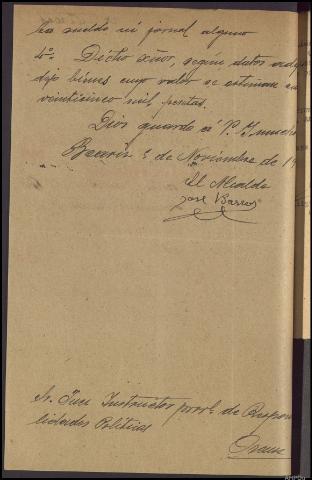 ha sueldo ni jornal alguno
4º. Dicho señor, según datos
dejó bienes cuyo valor se estiman en
veinticinco mil pesetas.
Dios guarde á V. I. muchos
Beariz 5 de Noviembre de 19
El Alcalde
José Barros
Sr. Juez Instructor provl. de Respon
lidades Políticas
Orense